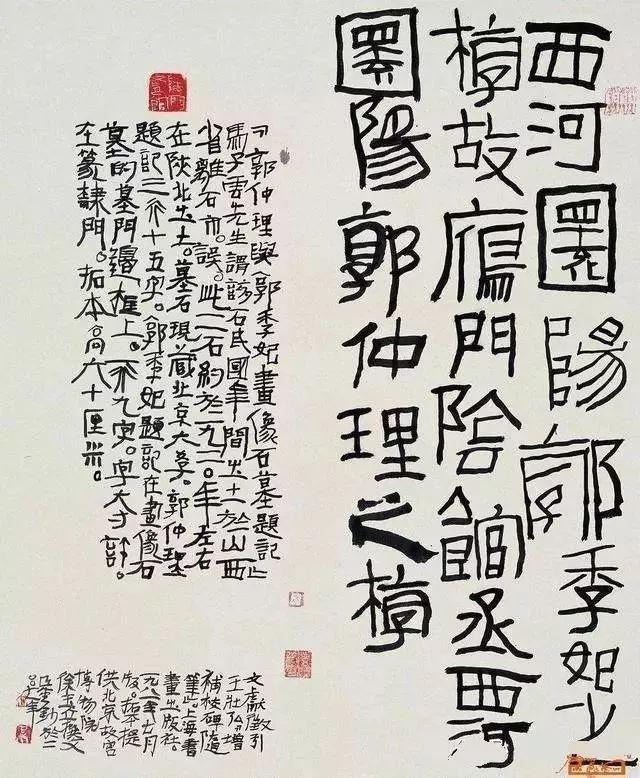 西河圜陽郭季妃之
椁故鴈門陰館丞西河
圜陽郭仲理之椁
郭仲理與《郭季妃畫像石墓題記》
馬子雲先生謂該石民國年間出土於山西
省離石市。誤。此二石約於一九二〇年左右
在陝北出土。墓石現藏北京大學。郭仲理
題記二行十五字。《郭季妃題記在畫像石
墓的墓門邊框上。一行九字。字大寸許。
在篆隸門。拓本高六十厘米。
文獻徵引
王壯弘增
補校碑隨
筆上海書
畫出版社
一九八一年七月
版。拓本提
供北京故宮
博物院